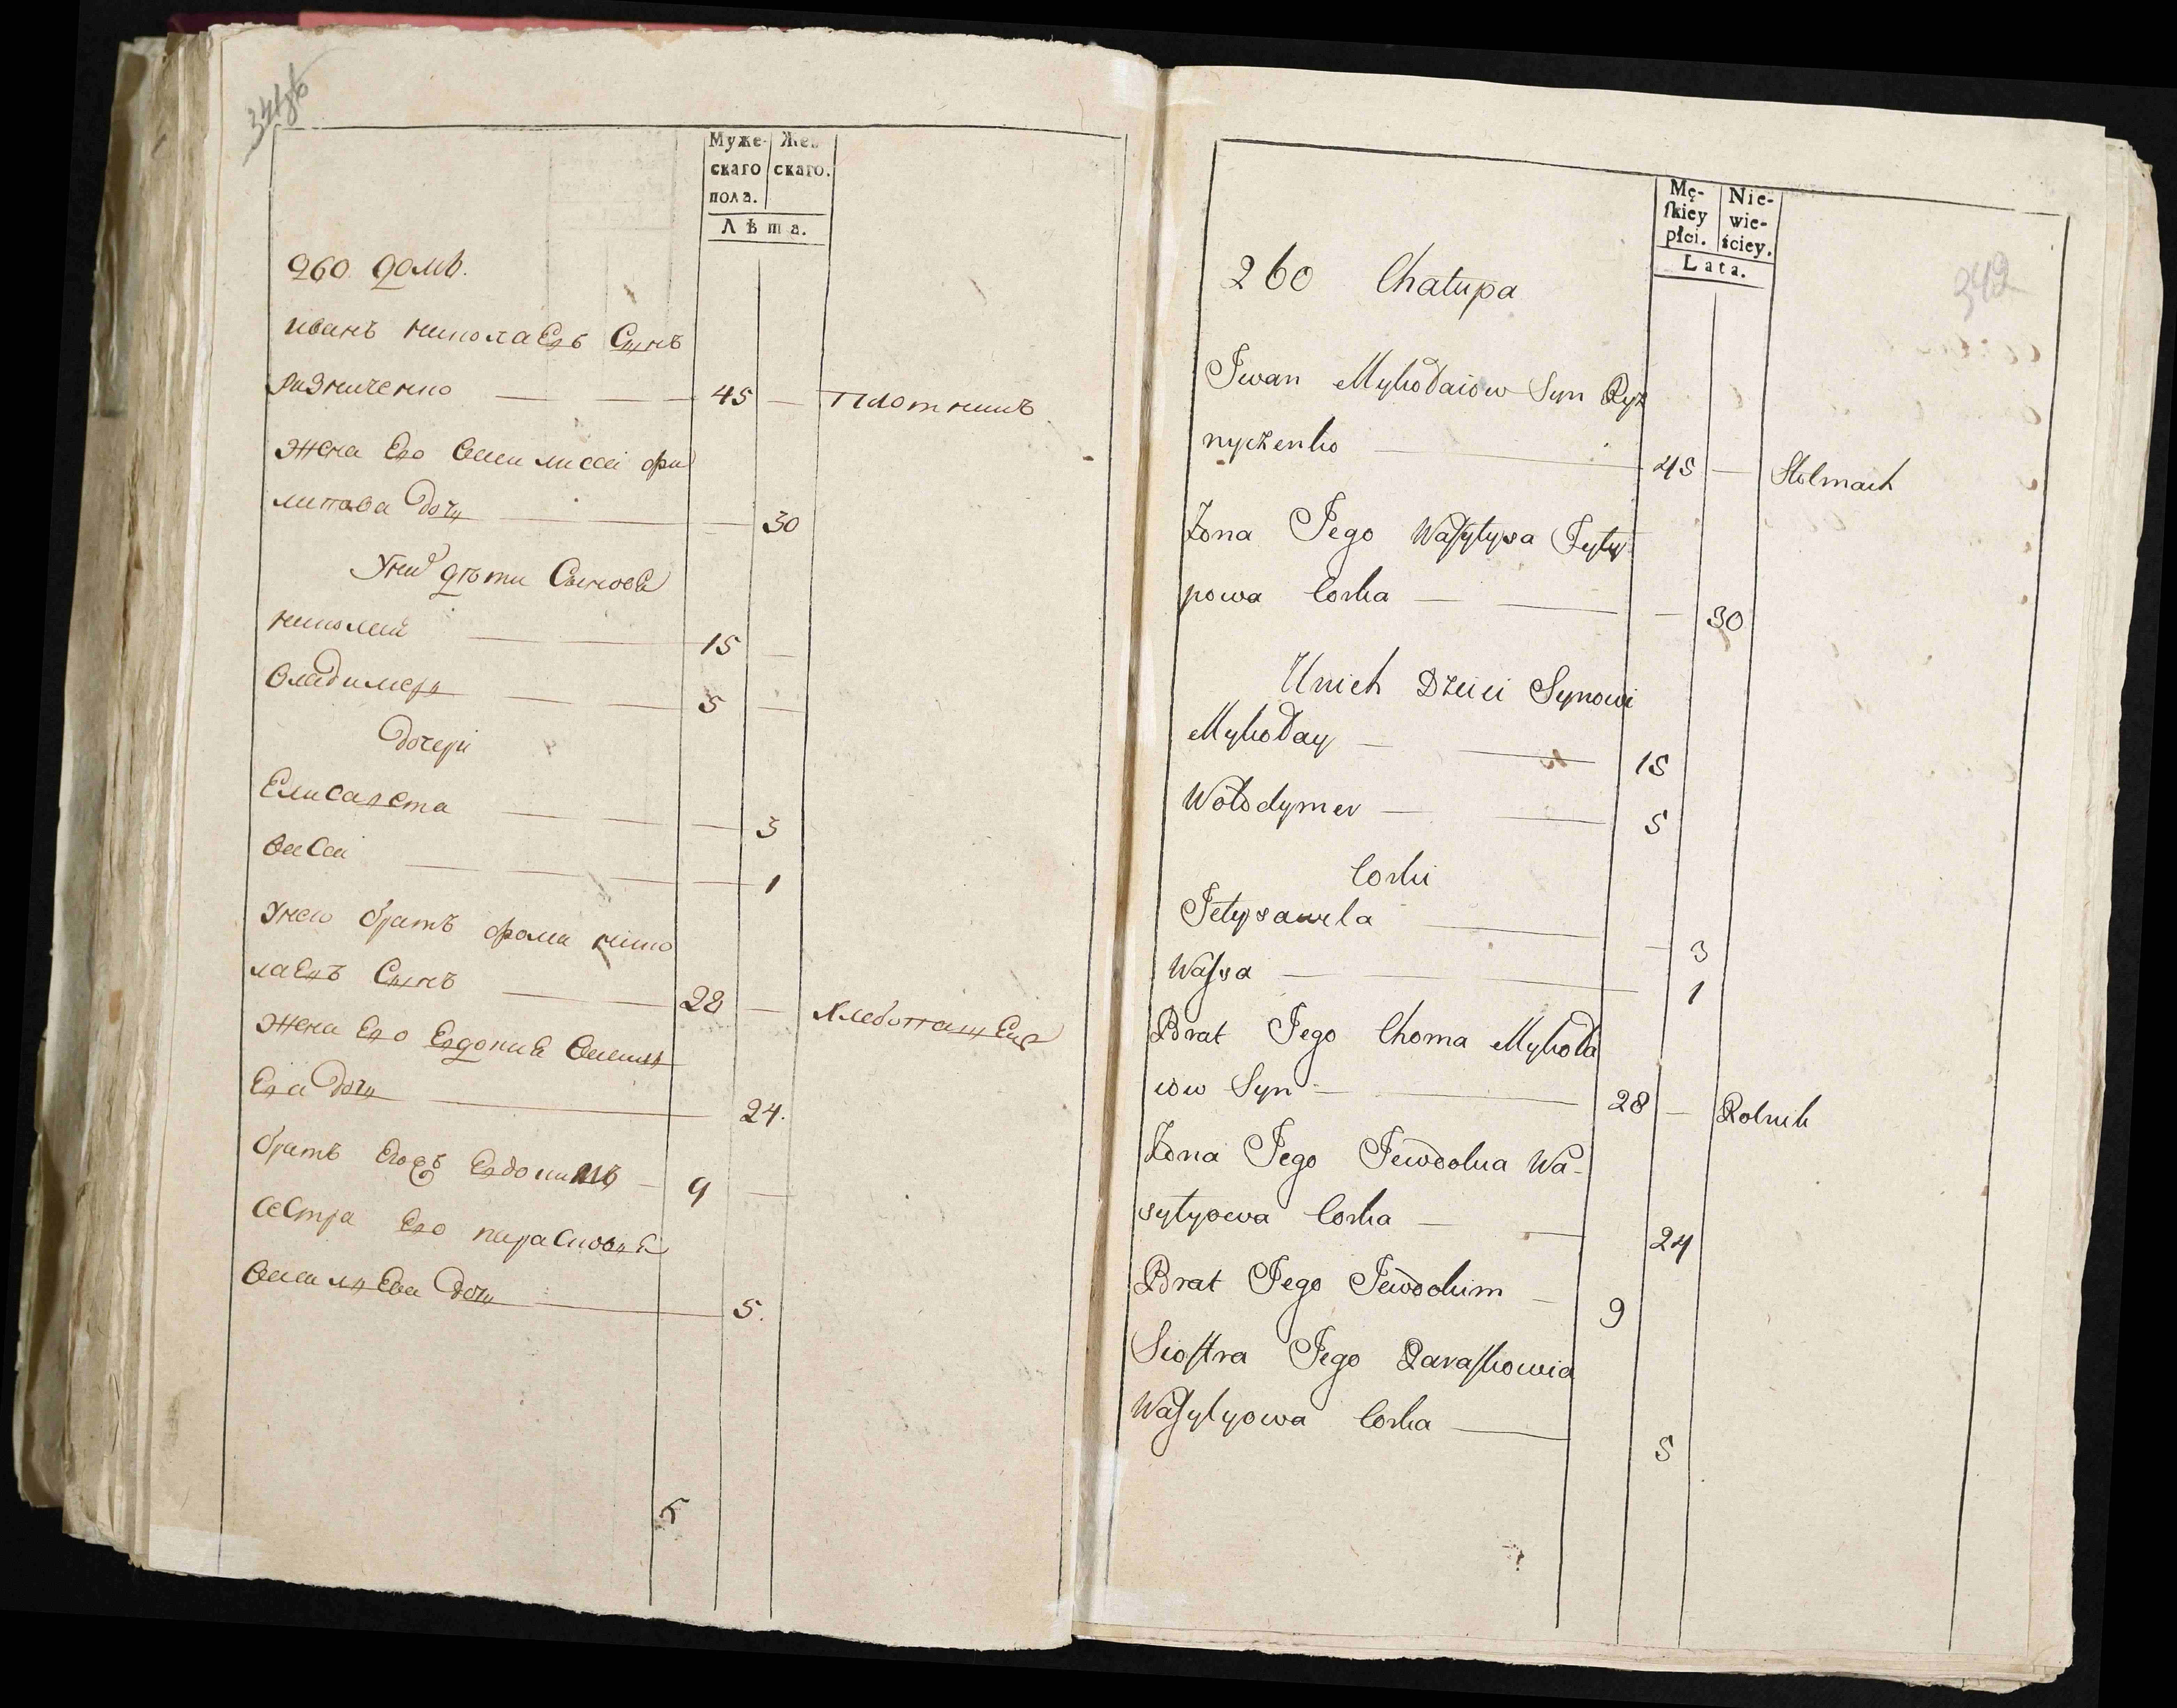 341об
Муже- Жен
скаго скаго.
пола.
Лѣта.
260 домъ.
иванъ николаевъ Сынъ
Ризниченко 45 — Плотникъ
жена Его Василиса фи
липова дочь — 30
У них дѣти Синовя
николай 15 —
Владимеръ 5 —
дочери
Елисавета — 3
Васса — 1
У него братъ фома нико
лаевъ Сынъ 28 — Хлебопашецъ
жена Его Евдокия Василь
Ева дочь 24.
братъ Его Евдокимъ — 9 —
Сестра Его парасковѣя
Васильева дочь 5.
5
Mę- Nie-
ſkiey wie-
płci. ściey.
Lata.
342
260 Chałupa
Jwan Mykołaiow Syn Ryz
nyczenko 45 — Stelmach
Żona Jego Waſyłysa Fyły
powa Corka — 30
Unich Dzieci Synowi
Mykołay — 15
Wołodymer — 5
Corki
Jełysaweta — 3
Waſsa — 1
Brat Jego Choma Mykoła
iow Syn — 28 — Rolnik
Żona Jego Jewdokia Wa-
syłyowa Corka — 24
Brat Jego Jewdokim — 9
Sioſtra Jego Paraſkowia
Waſyłyowa Corka 5